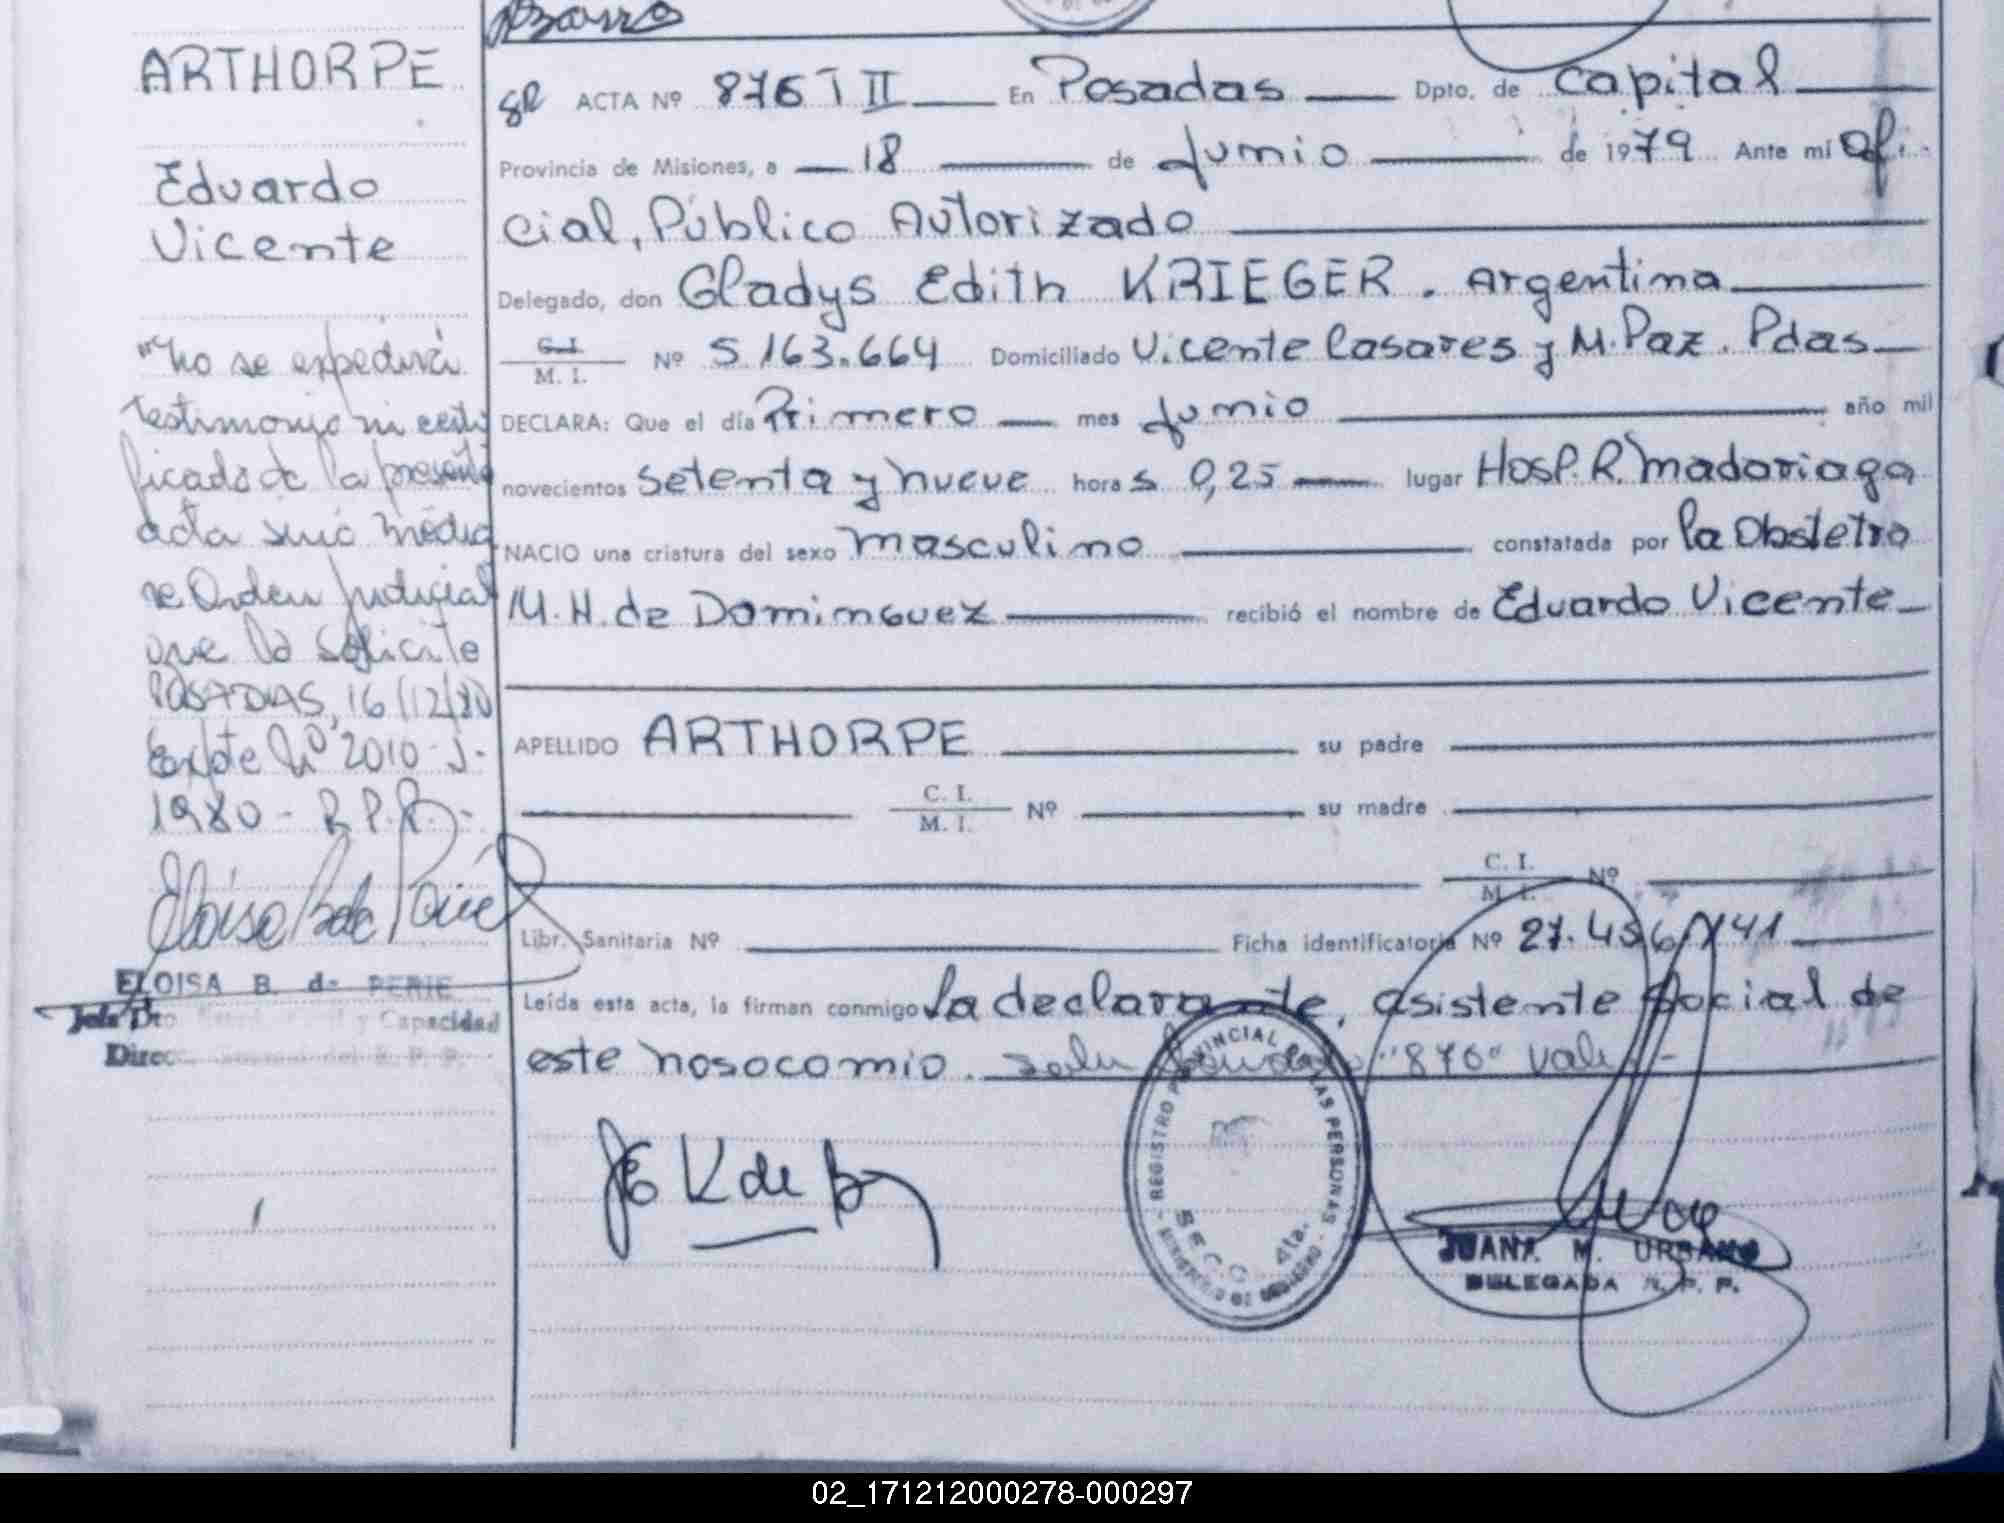 ARTHORPE
Eduardo
Vicente
"No se expedirá
testimonio ni certi
ficado de la presente
acta sino media
se Orden Judicial
que lo solicite
POSADAS, 16/12/80
Expte Nº 2010-J-
1980 - R.P.P.-
ELOISA B. de PERIE
Jefe Dto. y Capacidad
Direc. General del R. P. P.
ACTA Nº 876 T II En Posadas Dpto. de Capital
Provincia de Misiones, a 18 de Junio de 1979 Ante mí Ofi-
cial, Público Autorizado
Delegado, don Gladys Edith KRIEGER. Argentina
C. I.
M. I. Nº 5.163.664 Domiciliado Vicente Casares y M. Paz. Pdas
DECLARA: Que el día Primero mes Junio año mil
novecientos setenta y nueve horas 0,25 lugar Hosp. R. Madariaga
NACIO una criatura del sexo masculino constatada por la Obstetra
M. H. de Dominguez recibió el nombre de Eduardo Vicente
APELLIDO ARTHORPE su padre
C. I.
M. I. Nº su madre
C. I.
M. I. Nº
Libr. Sanitaria Nº Ficha identificatoria Nº 27.456.141
Leída esta acta, la firman conmigo la declarante, asistente Social de
este nosocomio. "876" Vale-
REGISTRO PROVINCIAL DE LAS PERSONAS
SECC. 4ta.
JUANA M. URBANO
DELEGADA R. P. P.
02_171212000278-000297